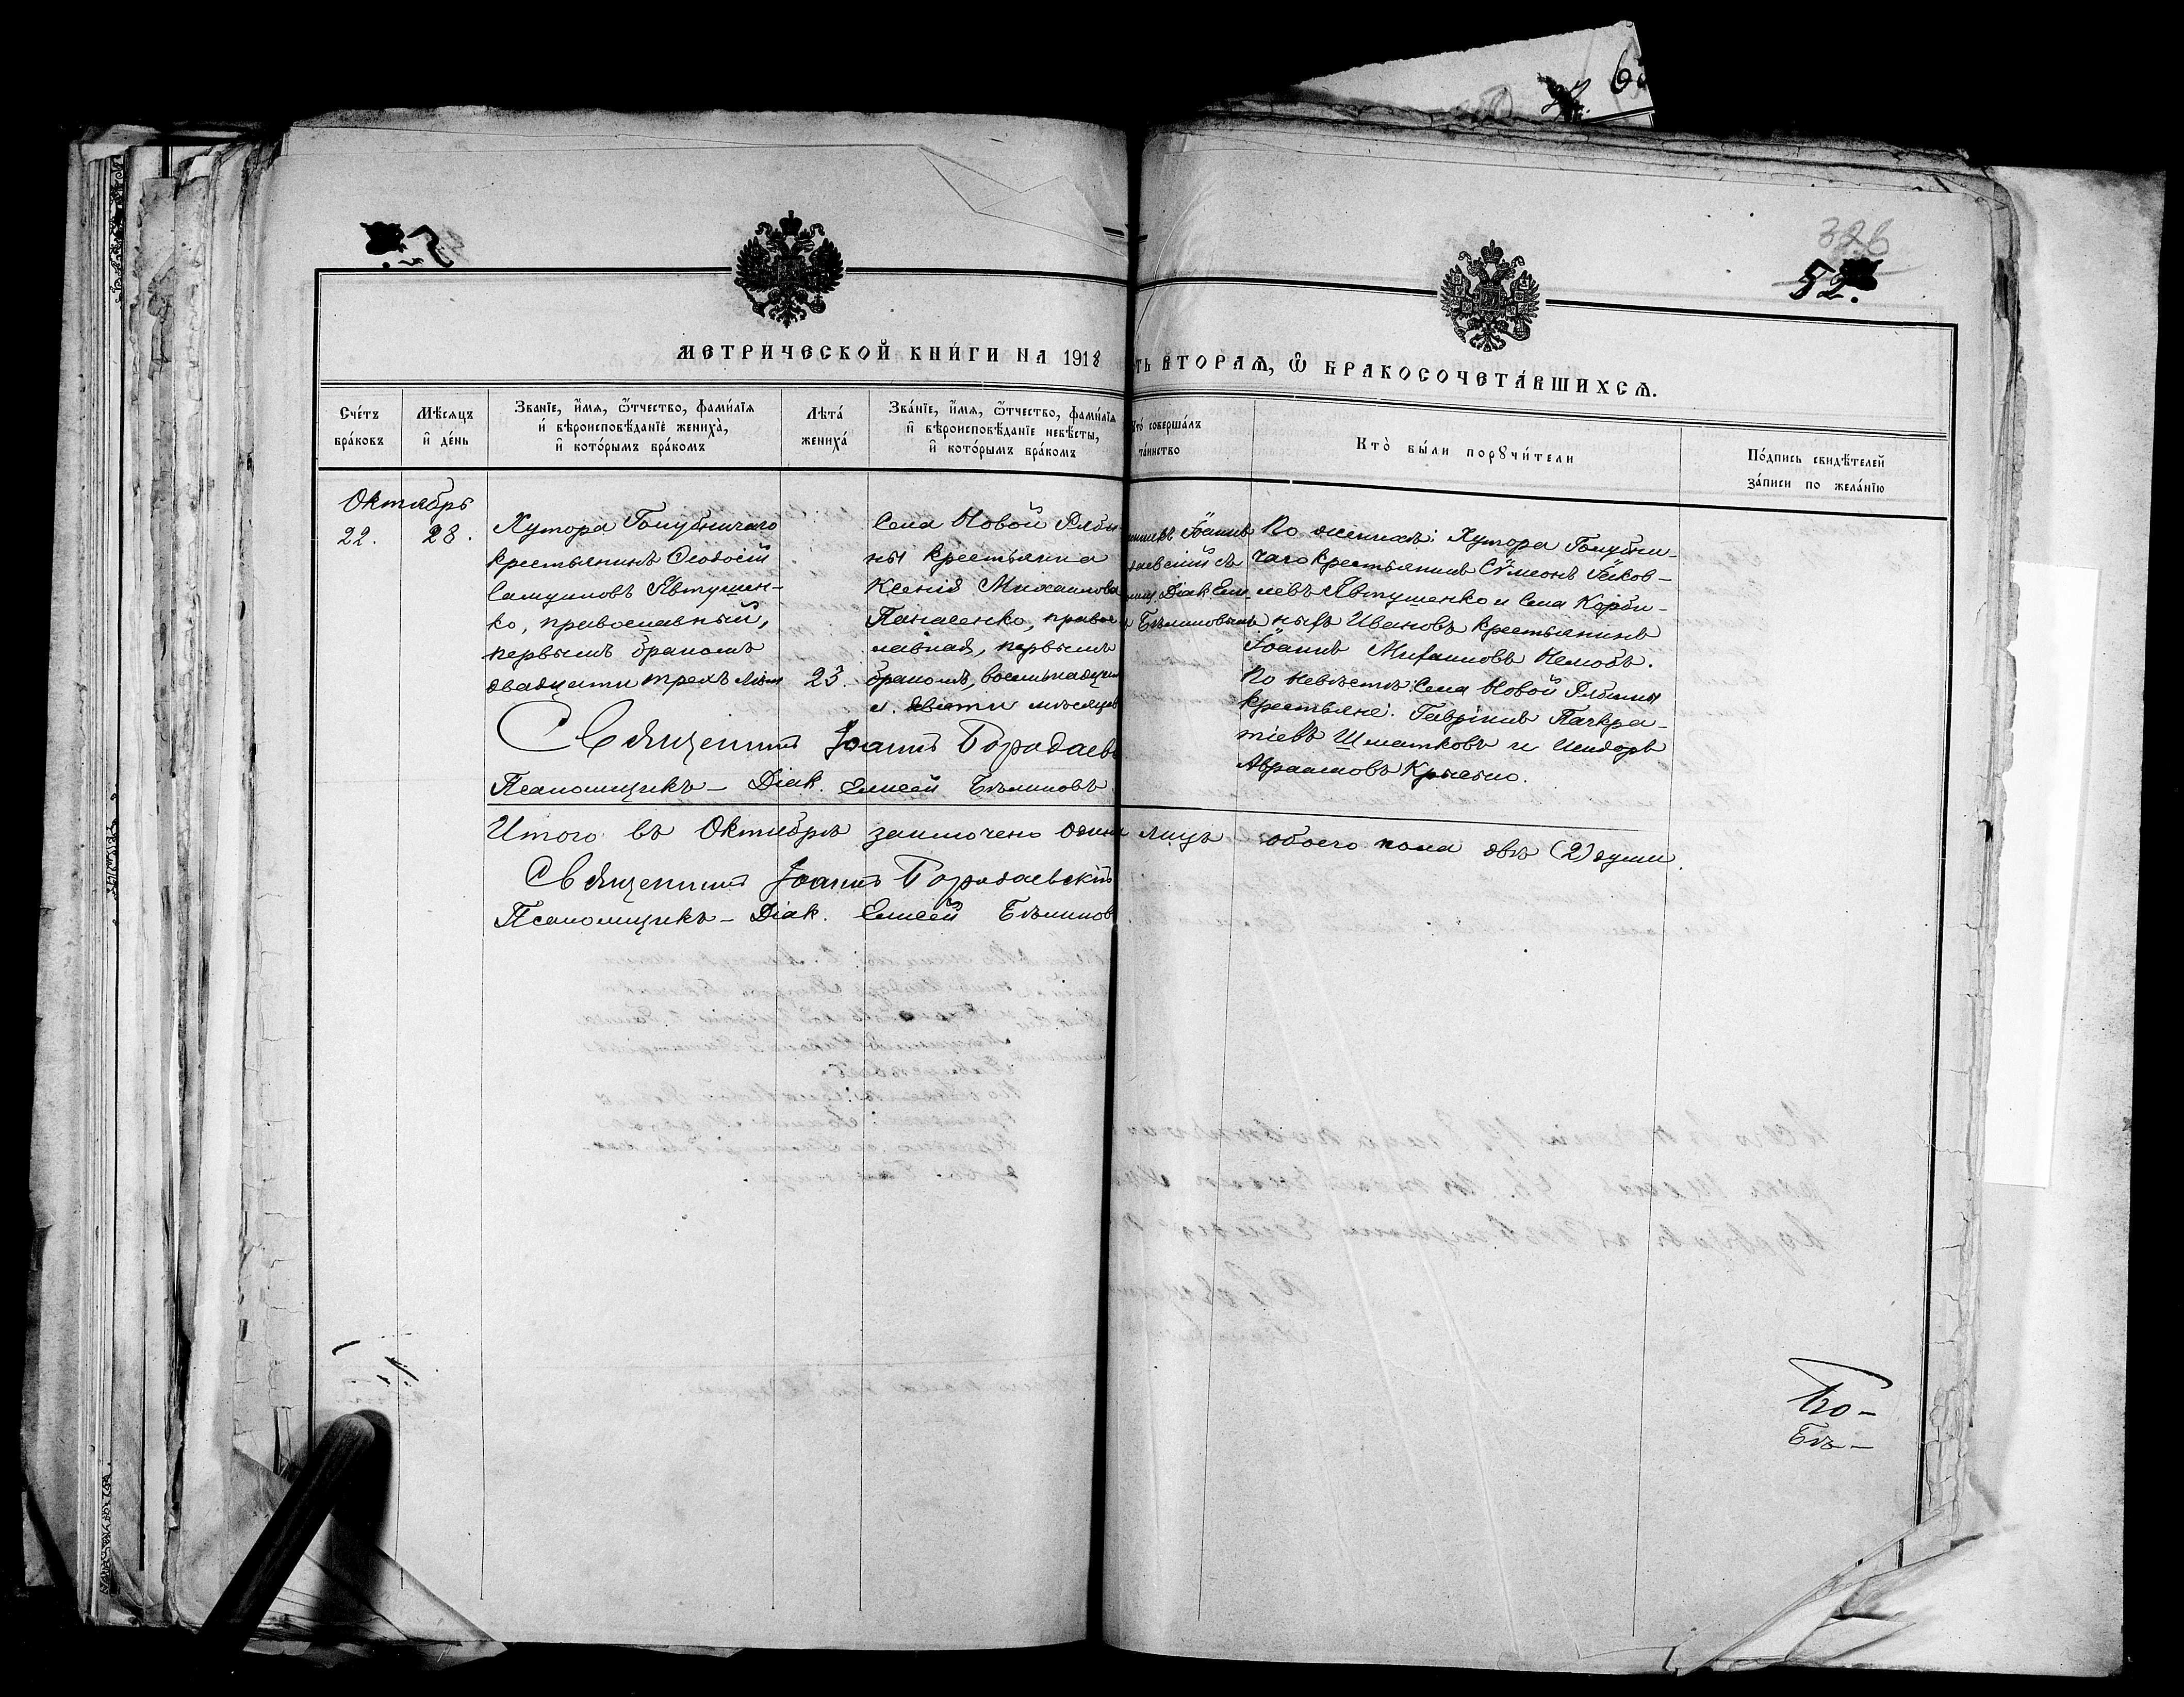 326
52.
МЕТРИЧЕСКОЙ КНИГИ НА 1918
ТЬ ВТОРАЯ, Ѿ БРАКОСОЧЕТАВШИХСЯ.
Счетъ браковъ
Мѣсяцъ и день
Званіе, имя, ѿтчество, фамилія и вѣроисповѣданіе жениха, и которымъ бракомъ
Лѣта жениха
Званіе, имя, ѿтчество, фамилія и вѣроисповѣданіе невѣсты, и которымъ бракомъ
то совершалъ таинство
Кто были поручители
Подпись свидѣтелей записи по желанію
Октябрь
22.
28.
Хутора Голубничаго
крестьянинъ Ѳеодосій
Самуиловъ Явтушен-
ко, православный,
первымъ бракомъ
двадцати трехъ лѣт
23.
Села Новой Рябы
ны крестьянка
Ксенія Михаилова
Панасенко, правос
лавная, первымъ
бракомъ, восьмнадцат
л. девяти мѣсяцев
Іоаннъ
Діак. Ели
Бѣлиновымъ
По женихѣ: Хутора Голубни-
чаго крестьянинъ Сѵмеонъ Іаков-
левъ Явтушенко и Села Корби-
ныхъ Ивановъ крестьянинъ
Іоаннъ Михаиловъ
По невѣстѣ: Села Новой Рябины
крестьяне: Гавріилъ Панкра-
тіевъ Шматковъ и Исидоръ
Авраамовъ
Священникъ Іоаннъ Бородаевс
Псаломщикъ - Діак. Елисей Бѣлиновъ.
Итого въ Октябрѣ заключено одинъ лицъ обоего пола двѣ (2) души.
Священникъ Іоаннъ Бородаевскій
Псаломщикъ - Діак. Елисей Бѣлинов
Бо-
Бѣ-